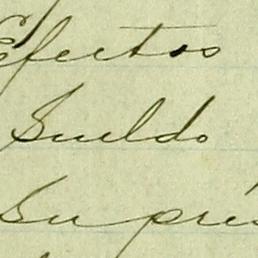 Efectos
Sueldo
Su prés